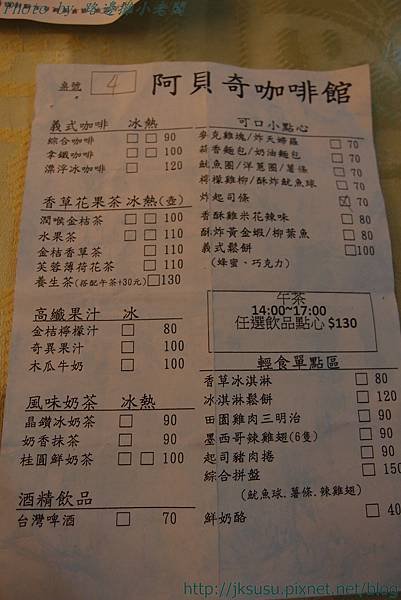 Photo by 路邊攤小老闆
桌號 4 阿貝奇咖啡館
義式咖啡 冰熱
綜合咖啡 □ □ 90
拿鐵咖啡 □ □ 100
漂浮冰咖啡 □ 120
香草花果茶 冰熱(壺)
潤喉金桔茶 □ □ 100
水果茶 □ □ 110
金桔香草茶 □ 110
芙蓉薄荷花茶 □ 110
養生茶(搭配午茶+30元) □ 130
高纖果汁 冰
金桔檸檬汁 □ 80
奇異果汁 □ 100
木瓜牛奶 □ 100
風味奶茶 冰熱
晶鑽冰奶茶 □ 90
奶香抹茶 □ 90
桂圓鮮奶茶 □ □ 100
酒精飲品
台灣啤酒 □ 70
可口小點心
麥克雞塊/炸天婦羅 □ 70
蒜香麵包/奶油麵包 □ 70
魷魚圈/洋蔥圈/薯條 □ 70
檸檬雞柳/酥炸魷魚球 □ 70
炸起司條 ☑ 70
香酥雞米花辣味 □ 80
酥炸黃金蝦/柳葉魚 □ 80
義式鬆餅 □ 100
(蜂蜜、巧克力)
午茶
14:00~17:00
任選飲品點心 $130
輕食單點區
香草冰淇淋 □ 80
冰淇淋鬆餅 □ 120
田園雞肉三明治 □ 90
墨西哥辣雞翅(6隻) □ 90
起司豬肉捲 □ 90
綜合拼盤 □ 150
(魷魚球.薯條.辣雞翅)
鮮奶酪 □ 40
http://jksusu.pixnet.net/blog